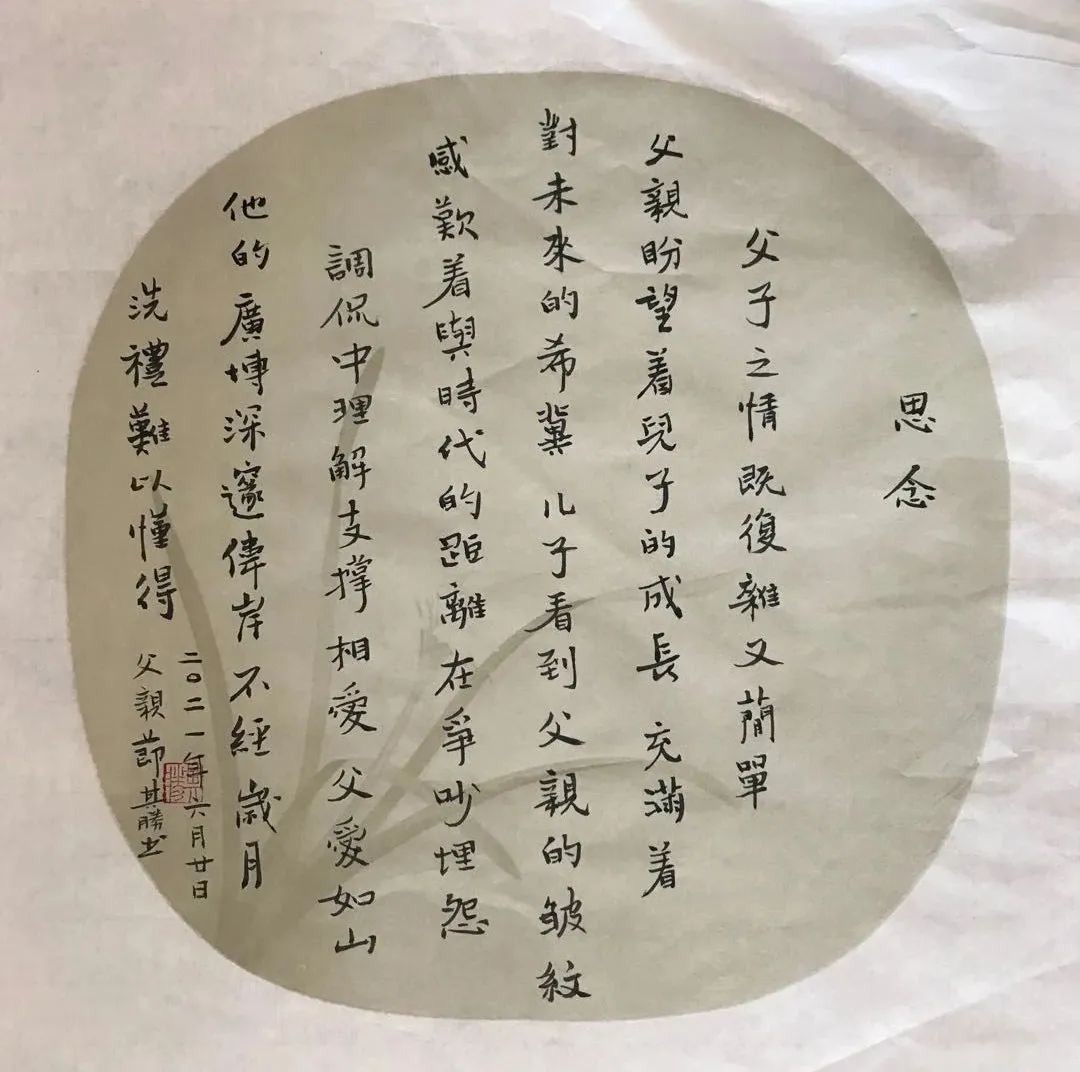 思念
父子之情既復雜又蕳單
父親盼望着兒子的成長 充滿着
對未來的希冀 儿子看到父親的皱紋
感歎着與時代的距離在爭吵埋怨
調侃中理解支撐相愛 父愛如山
他的廣博深邃偉岸不經歲月
洗禮難以懂得
二〇二一年六月廿日
父親節其勝书